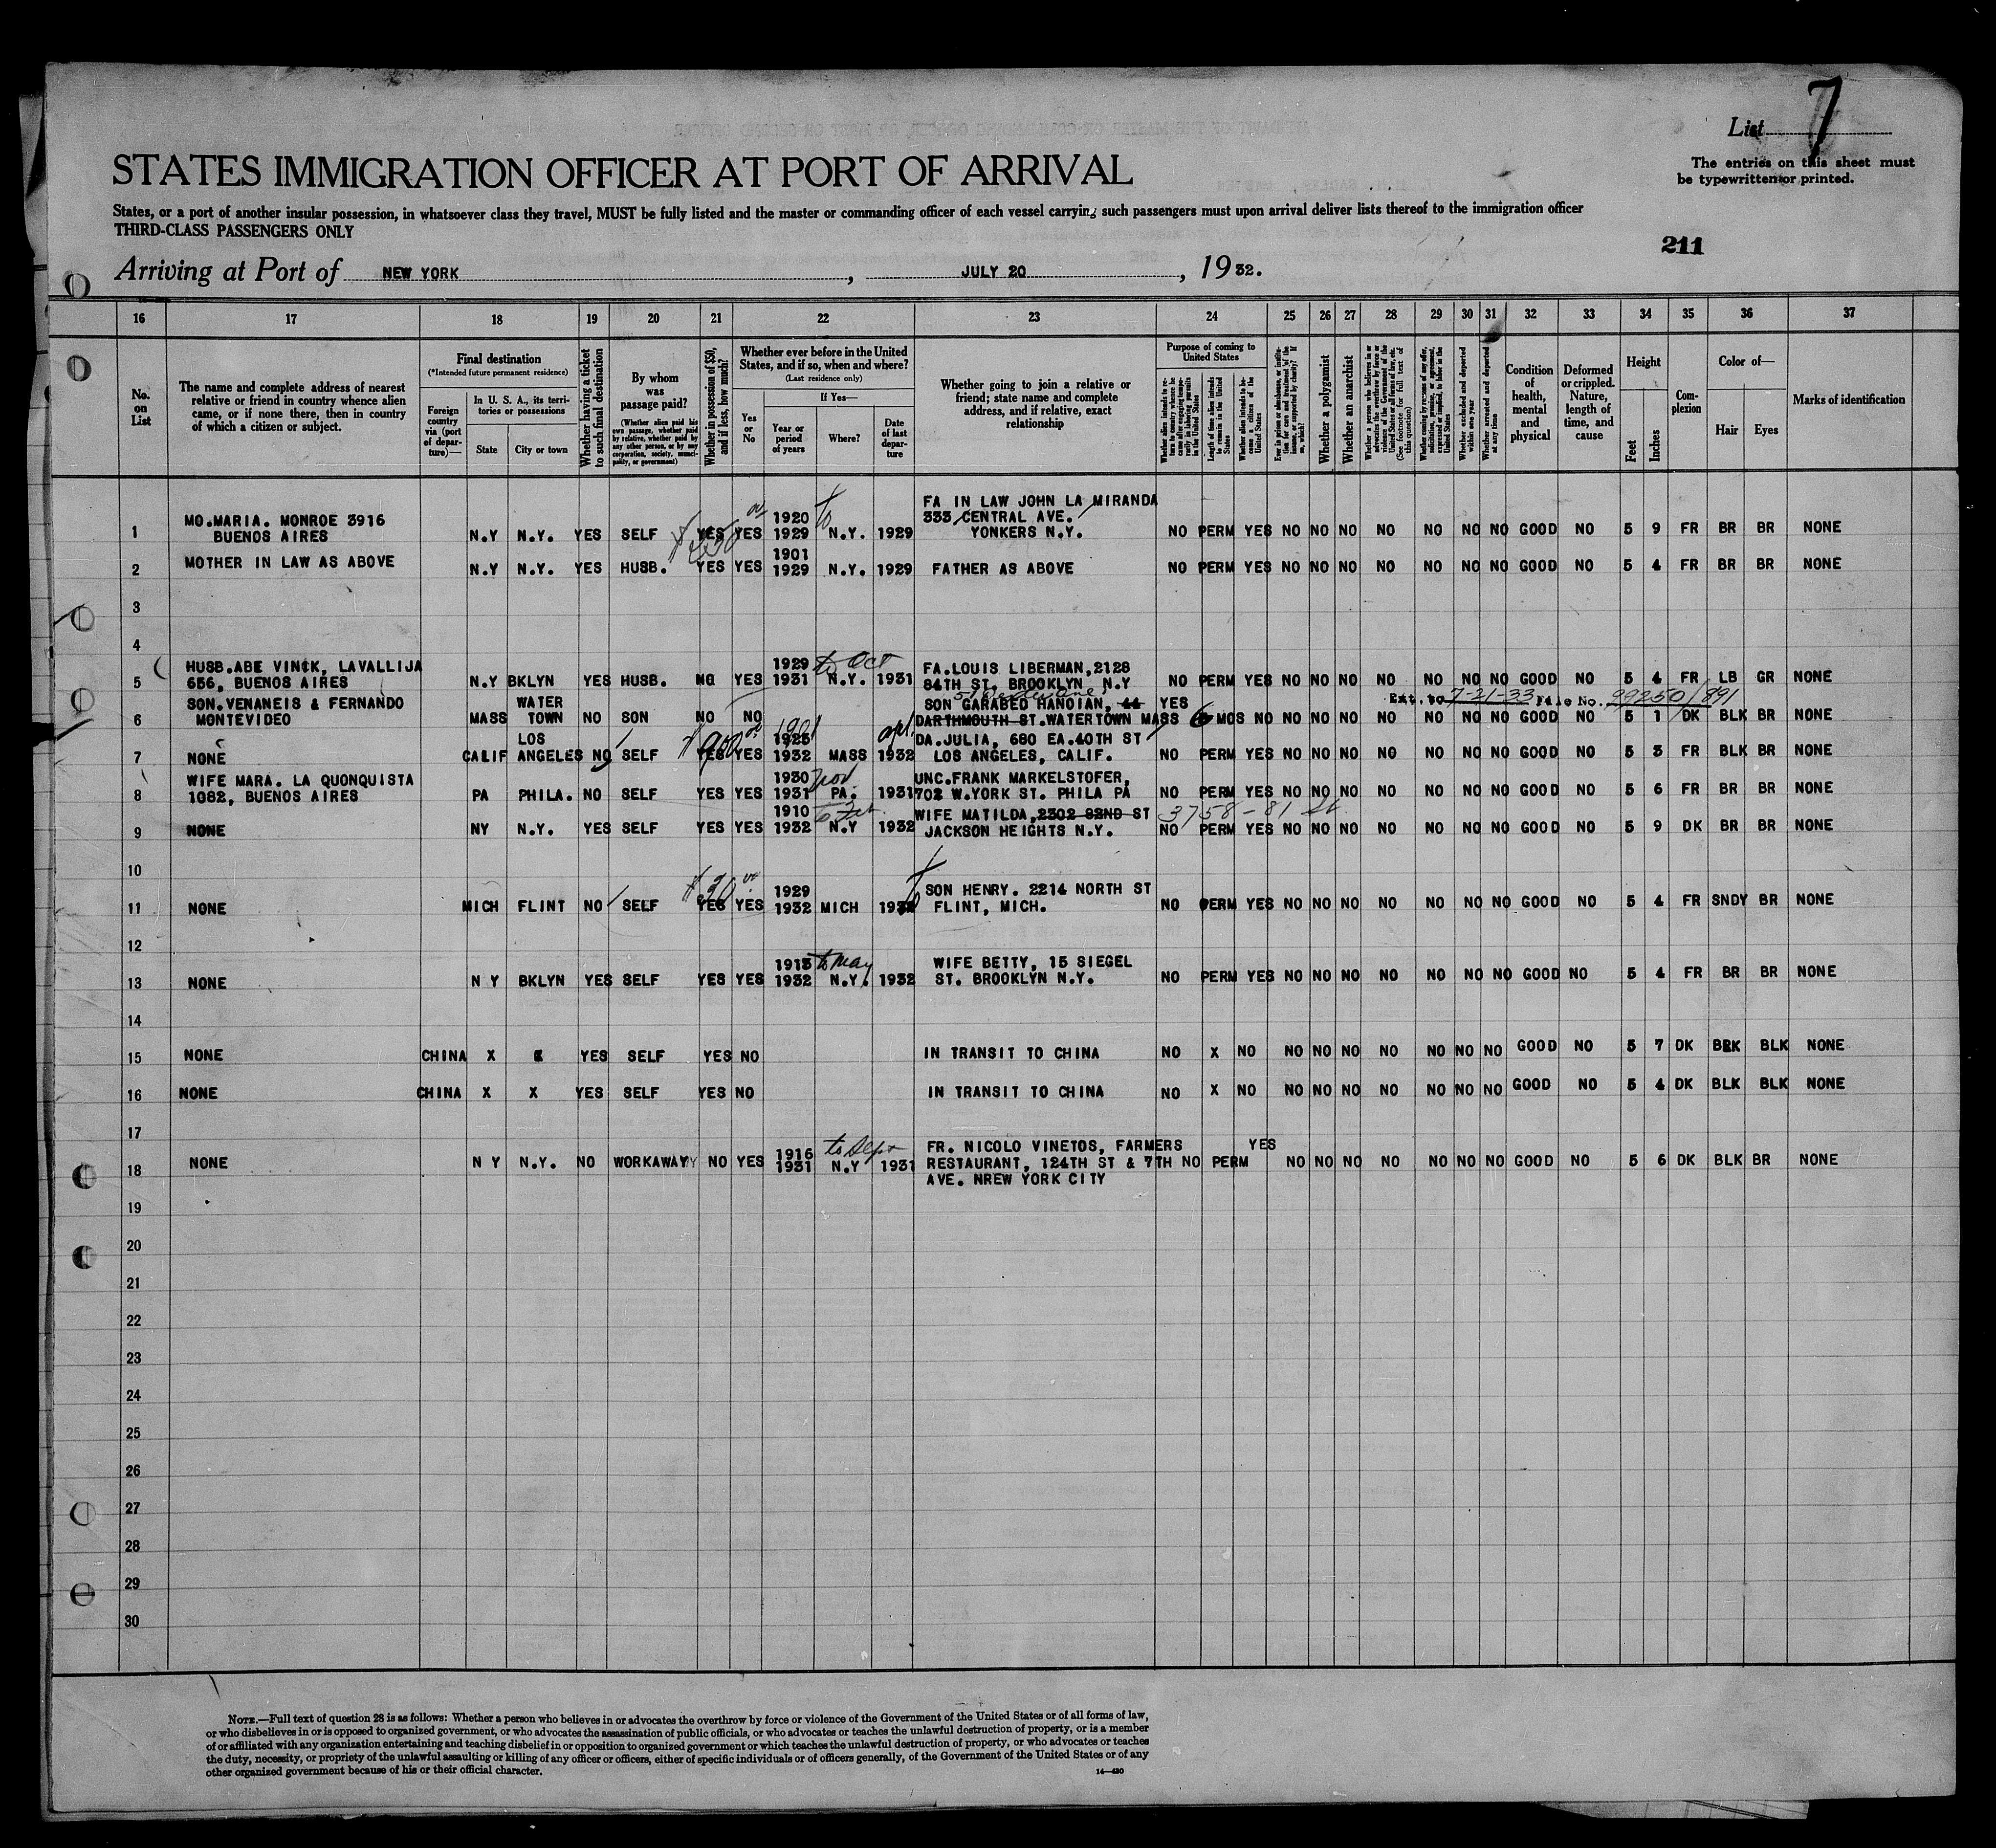 List 7
STATES IMMIGRATION OFFICER AT PORT OF ARRIVAL
The entries on this sheet must
be typewritten or printed.
States, or a port of another insular possession, in whatsoever class they travel, MUST be fully listed and the master or commanding officer of each vessel carrying such passengers must upon arrival deliver lists thereof to the immigration officer
THIRD-CLASS PASSENGERS ONLY
211
Arriving at Port of NEW YORK, JULY 20, 1932.
16 17 18 19 20 21 22 23 24 25 26 27 28 29 30 31 32 33 34 35 36 37
No. on List
The name and complete address of nearest
relative or friend in country whence alien
came, or if none there, then in country
of which a citizen or subject.
Final destination
(*Intended future permanent residence)
Foreign country via (port of departure)—
In U. S. A., its territories or possessions
State
City or town
Whether having a ticket to such final destination
By whom was passage paid?
(Whether alien paid his own passage, whether paid by relative, whether paid by any other person, or by any corporation, society, municipality, or government)
Whether in possession of $50, and if less, how much?
Whether ever before in the United
States, and if so, when and where?
(Last residence only)
Yes or No
If Yes—
Year or period of years
Where?
Date of last departure
Whether going to join a relative or
friend; state name and complete
address, and if relative, exact
relationship
Purpose of coming to
United States
Length of time alien intends to remain in the United States
Whether alien intends to become a citizen of the United States
Whether a polygamist
Whether an anarchist
Whether excluded and deported within one year
Whether arrested and deported at any time
Condition of health, mental and physical
Deformed or crippled. Nature, length of time, and cause
Height
Feet
Inches
Complexion
Color of—
Hair
Eyes
Marks of identification
1 MO.MARIA. MONROE 3916 BUENOS AIRES N.Y N.Y. YES SELF YES YES 1920 1929 to N.Y. 1929 FA IN LAW JOHN LA MIRANDA 333 CENTRAL AVE. YONKERS N.Y. NO PERM YES NO NO NO NO NO NO NO GOOD NO 5 9 FR BR BR NONE
2 MOTHER IN LAW AS ABOVE N.Y N.Y. YES HUSB. YES YES 1901 1929 N.Y. 1929 FATHER AS ABOVE NO PERM YES NO NO NO NO NO NO NO GOOD NO 5 4 FR BR BR NONE
3
4
5 HUSB.ABE VINCK, LAVALLIJA 656, BUENOS AIRES N.Y BKLYN YES HUSB. NO YES 1929 1931 to Oct N.Y. 1931 FA.LOUIS LIBERMAN,2128 84TH ST. BROOKLYN N.Y NO PERM YES NO NO NO NO NO NO NO GOOD NO 5 4 FR LB GR NONE
Ext. to 7-21-33 File No. 99250/891
6 SON.VENANEIS & FERNANDO MONTEVIDEO MASS WATER TOWN NO SON NO NO SON GARABED HANOIAN, 44 DARTHMOUTH ST.WATERTOWN MASS YES 6 MOS NO NO NO NO NO NO NO NO GOOD NO 5 1 DK BLK BR NONE
7 NONE CALIF LOS ANGELES NO SELF $900 YES YES 1901 1925 1932 MASS apl. 1932 DA.JULIA, 680 EA.40TH ST LOS ANGELES, CALIF. NO PERM YES NO NO NO NO NO NO NO GOOD NO 5 3 FR BLK BR NONE
8 WIFE MARA. LA QUONQUISTA 1082, BUENOS AIRES PA PHILA. NO SELF YES YES 1930 1931 Nov PA. 1931 UNC.FRANK MARKELSTOFER, 702 W.YORK ST. PHILA PA NO PERM YES NO NO NO NO NO NO NO GOOD NO 5 6 FR BR BR NONE
9 NONE NY N.Y. YES SELF YES YES 1910 1932 N.Y 1932 WIFE MATILDA,2302 82ND ST 3758-81 St. JACKSON HEIGHTS N.Y. NO PERM YES NO NO NO NO NO NO NO GOOD NO 5 9 DK BR BR NONE
10
11 NONE MICH FLINT NO SELF $30 YES YES 1929 1932 MICH 1932 SON HENRY. 2214 NORTH ST FLINT, MICH. NO PERM YES NO NO NO NO NO NO NO GOOD NO 5 4 FR SNDY BR NONE
12
13 NONE N Y BKLYN YES SELF YES YES 1913 1932 to May N.Y. 1932 WIFE BETTY, 15 SIEGEL ST. BROOKLYN N.Y. NO PERM YES NO NO NO NO NO NO NO GOOD NO 5 4 FR BR BR NONE
14
15 NONE CHINA X X YES SELF YES NO IN TRANSIT TO CHINA NO X NO NO NO NO NO NO NO NO GOOD NO 5 7 DK BLK BLK NONE
16 NONE CHINA X X YES SELF YES NO IN TRANSIT TO CHINA NO X NO NO NO NO NO NO NO NO GOOD NO 5 4 DK BLK BLK NONE
17
18 NONE N Y N.Y. NO WORKAWAY NO YES 1916 1931 to Sept N.Y 1931 FR. NICOLO VINETOS, FARMERS RESTAURANT, 124TH ST & 7TH AVE. NREW YORK CITY NO PERM YES NO NO NO NO NO NO NO GOOD NO 5 6 DK BLK BR NONE
19
20
21
22
23
24
25
26
27
28
29
30
NOTE.—Full text of question 28 is as follows: Whether a person who believes in or advocates the overthrow by force or violence of the Government of the United States or of all forms of law,
or who disbelieves in or is opposed to organized government, or who advocates the assassination of public officials, or who advocates or teaches the unlawful destruction of property, or is a member
of or affiliated with any organization entertaining and teaching disbelief in or opposition to organized government or which teaches the unlawful destruction of property, or who advocates or teaches
the duty, necessity, or propriety of the unlawful assaulting or killing of any officer or officers, either of specific individuals or of officers generally, of the Government of the United States or of any
other organized government because of his or their official character.
14—430